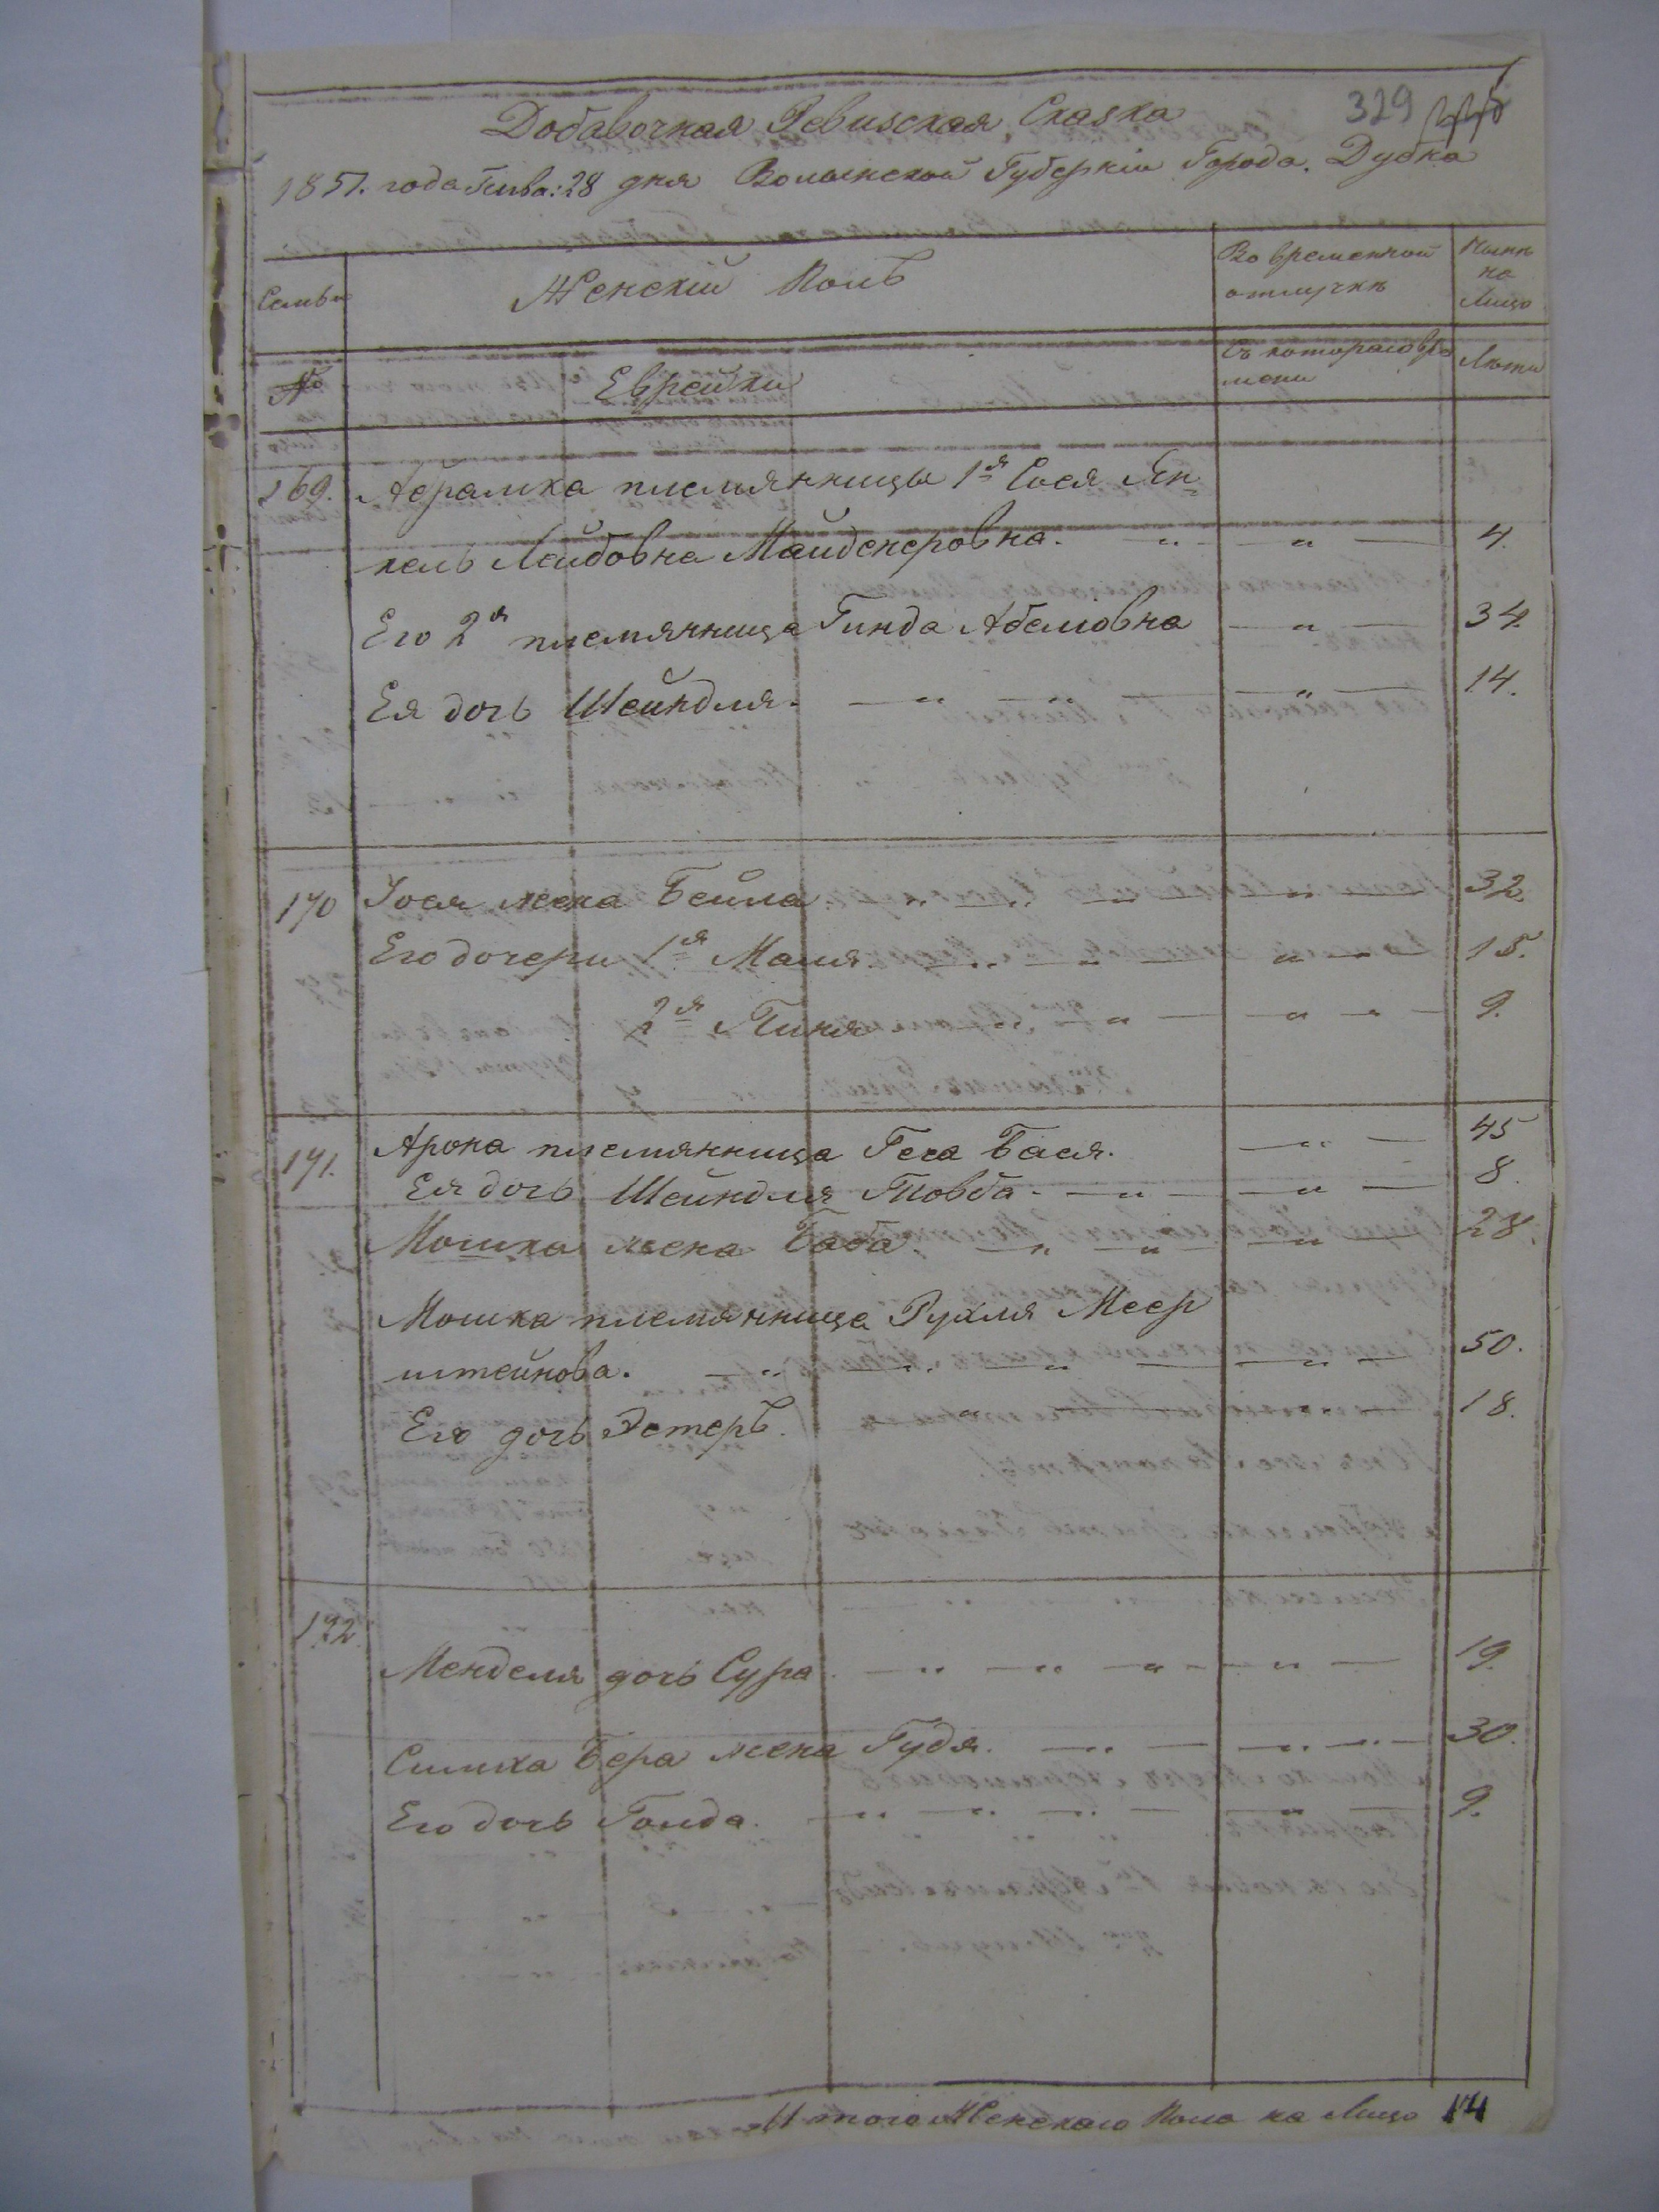 329
Добавочная Ревизская Сказка
1857. года Генва: 28 дня Волынской Губерніи Города Дубна
Семьи
Женскій Полъ
Во временной отлучкѣ
Нынѣ на Лицо
№
Еврейки
Съ котораго времени
Лѣта
169. Абрамка племянницы 1я Сося Ян=
кель Лейбовна Майденеровна. 4.
Его 2я племянница Гинда Абелиовна 34.
Ея дочь Шейндля. 14.
170 Іося жена Бейла 32.
Его дочери 1я Маля. 15.
2я Пиня 9.
171. Арона племянница Геся Бася. 45
Ея дочь Шейндля Товба. 8.
Мошка жена Баба. 28.
Мошка племянница Рухля Меер
штейнова. 50.
Его дочь Эстеръ. 18.
172 Менделя дочь Сура. 19.
Симха Бера жена Гудя. 30.
Его дочь Голда. 9.
Итого Женскаго Пола на Лицо 14